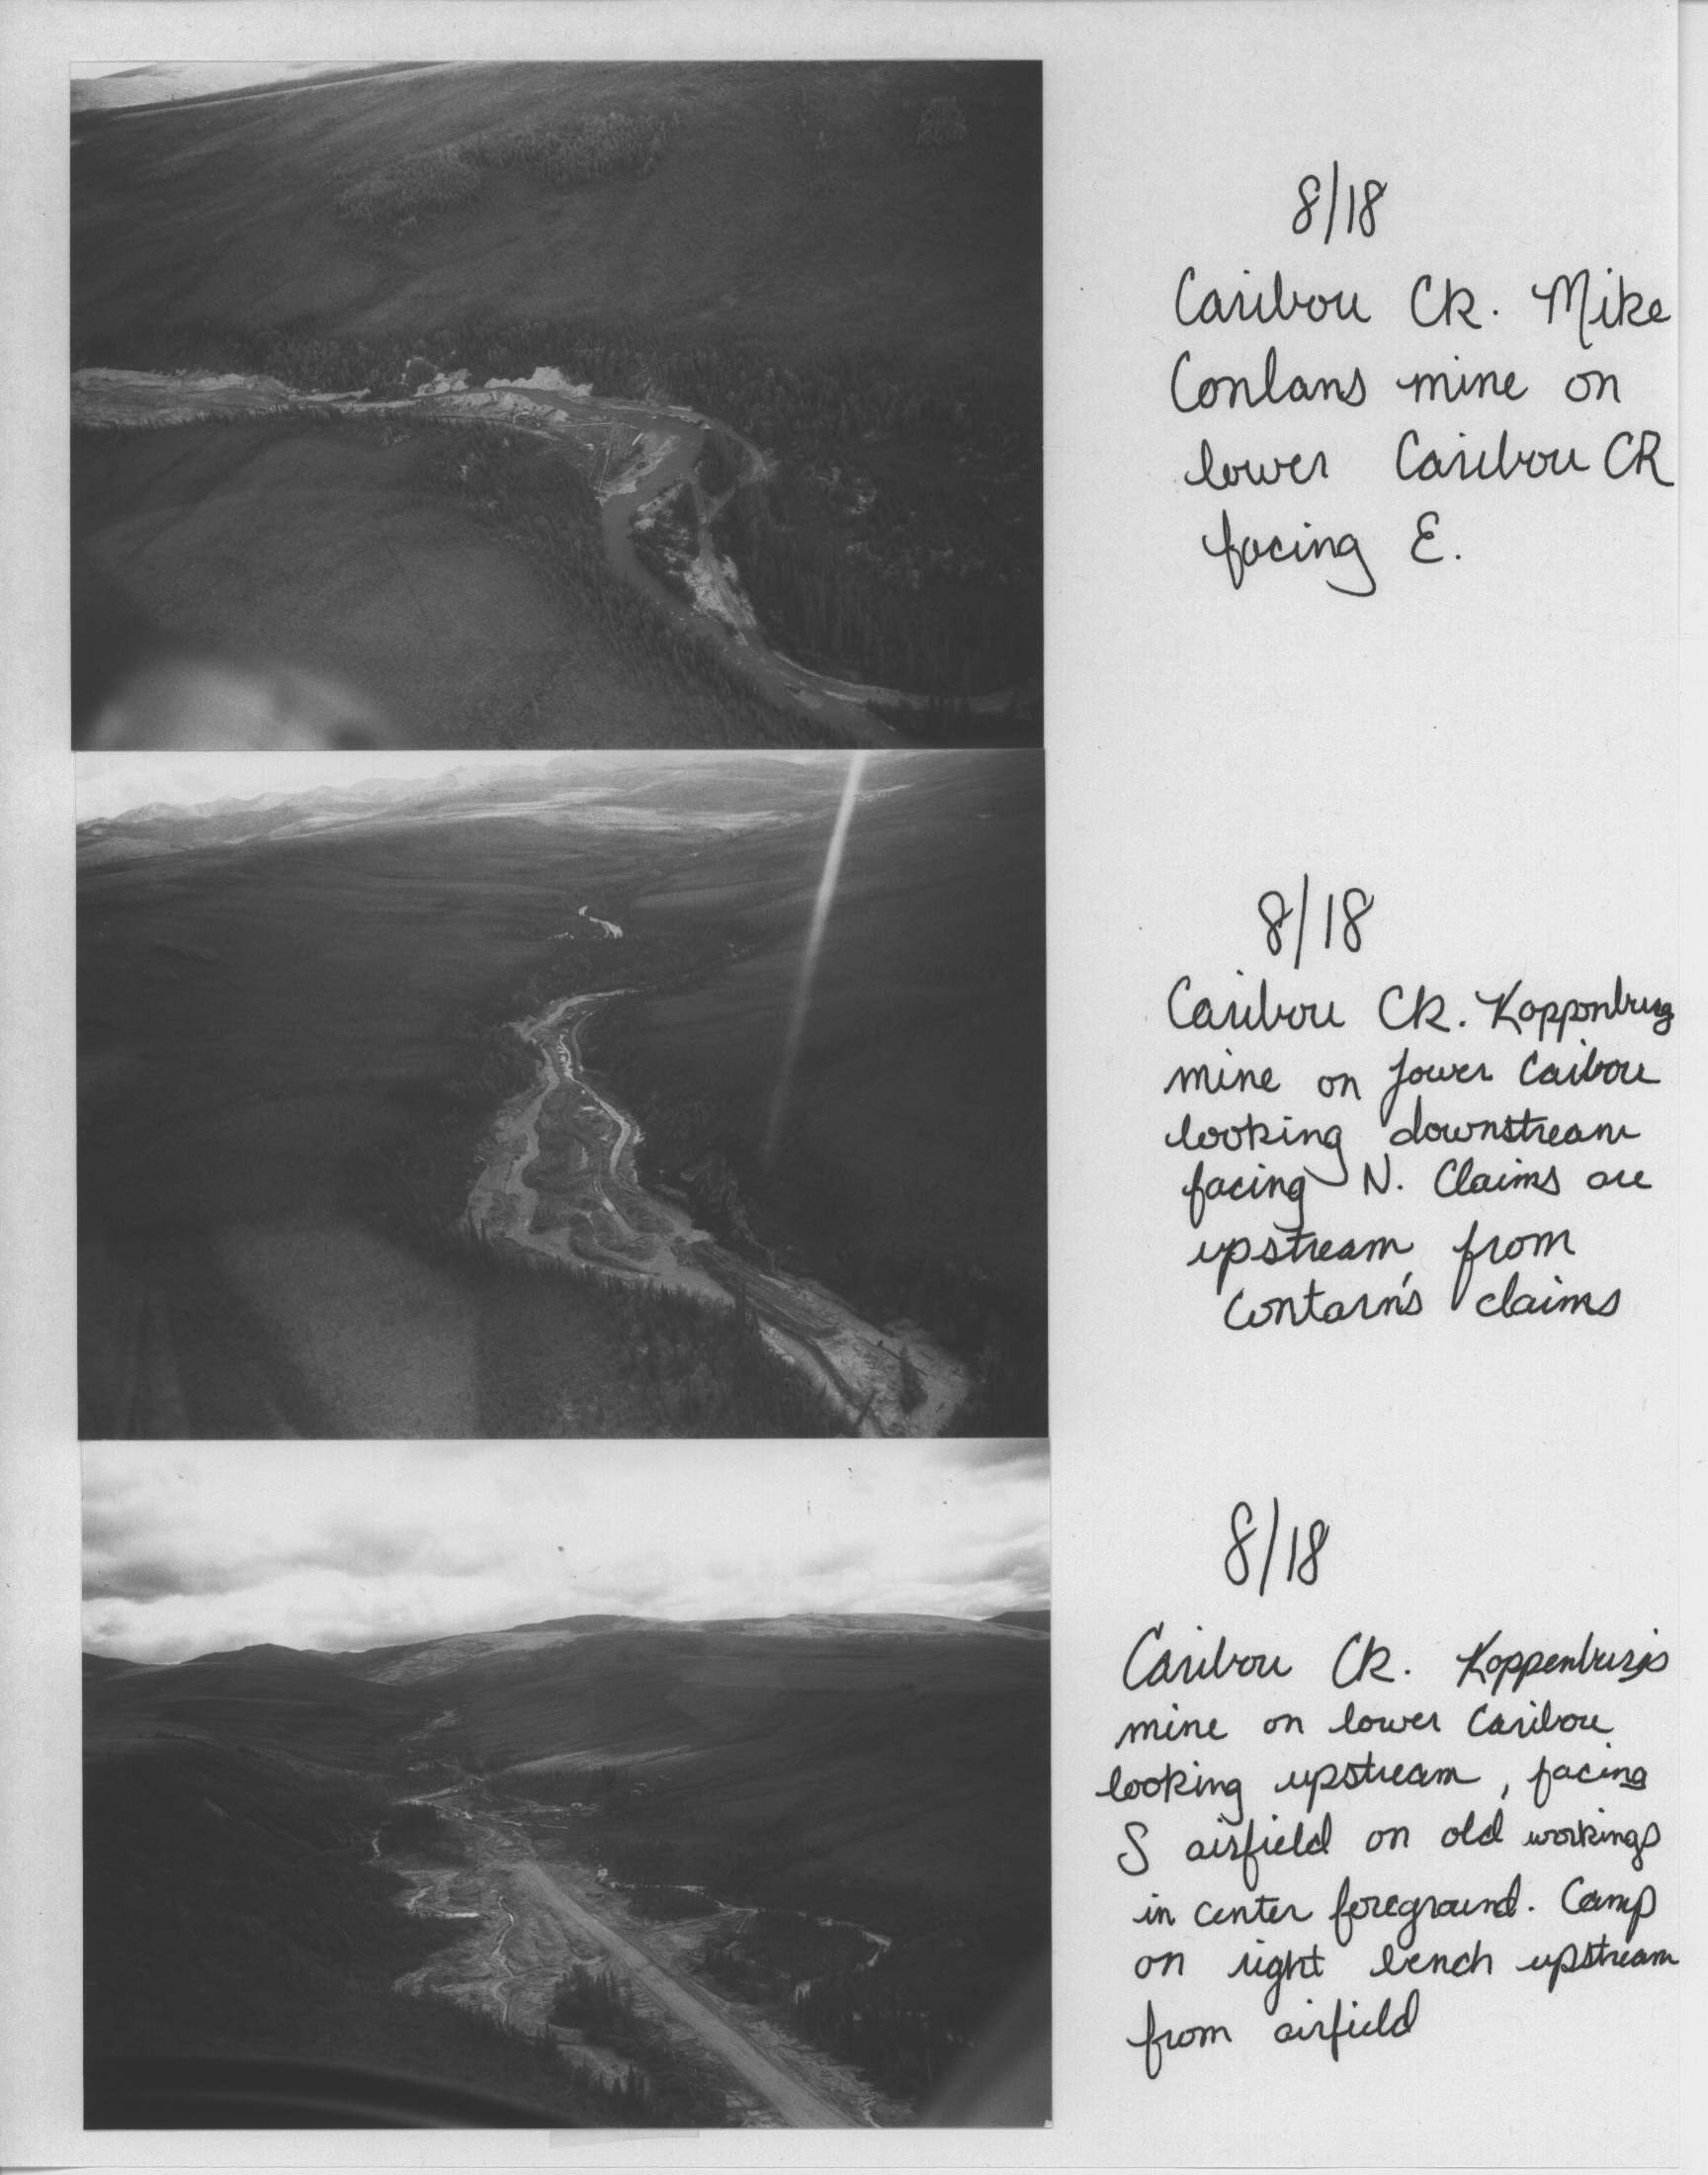 8/18
Caribou Ck. Mike
Conlans mine on
lower Caribou CR
facing E.
8/18
Caribou Ck. Kopponburg
mine on lower Caribou
looking downstream
facing N. Claims are
upstream from
claims
8/18
Caribou Ck. Koppenburg's
mine on lower Caribou
looking upstream, facing
S airfield on old workings
in center foreground. Camp
on right bench upstream
from airfield